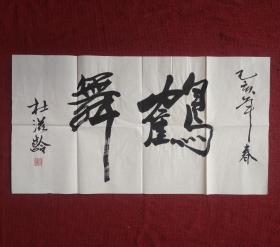 乙亥年春
鶴舞
杜滋齡